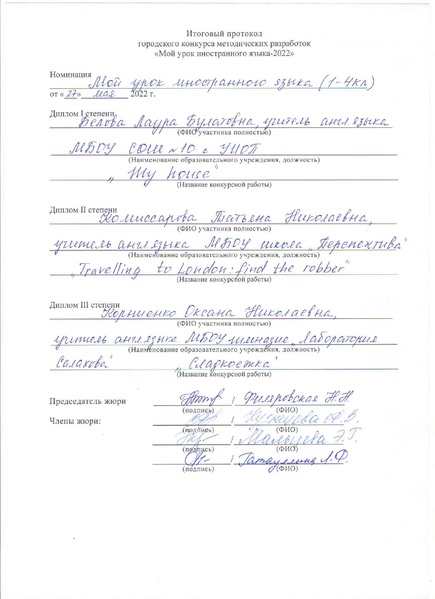 Итоговый протокол
городского конкурса методических разработок
«Мой урок иностранного языка-2022»
Номинация Мой урок иностранного языка (1-4кл)
от «27» мая 2022 г.
Диплом I степени
Белова Лаура Булатовна, учитель англ языка
(ФИО участника полностью)
МБОУ СОШ №10 с УИОП
(Наименование образовательного учреждения, должность)
„My house"
(Название конкурсной работы)
Диплом II степени
Комиссарова Татьяна Николаевна,
(ФИО участника полностью)
учитель англ языка МБОУ школа „Перспектива"
(Наименование образовательного учреждения, должность)
„Travelling to London: find the robber"
(Название конкурсной работы)
Диплом III степени
Корниенко Оксана Николаевна,
(ФИО участника полностью)
учитель англ языка МБОУ гимназия „Лаборатория
(Наименование образовательного учреждения, должность)
Салахова" „Сладкоежка"
(Название конкурсной работы)
Председатель жюри / Фигяровская Н.Н.
(подпись) (ФИО)
Члены жюри: / А.В.
(подпись) (ФИО)
/ Малышева Э.Г.
(подпись) (ФИО)
/ Гатауллина Л.Ф.
(подпись) (ФИО)